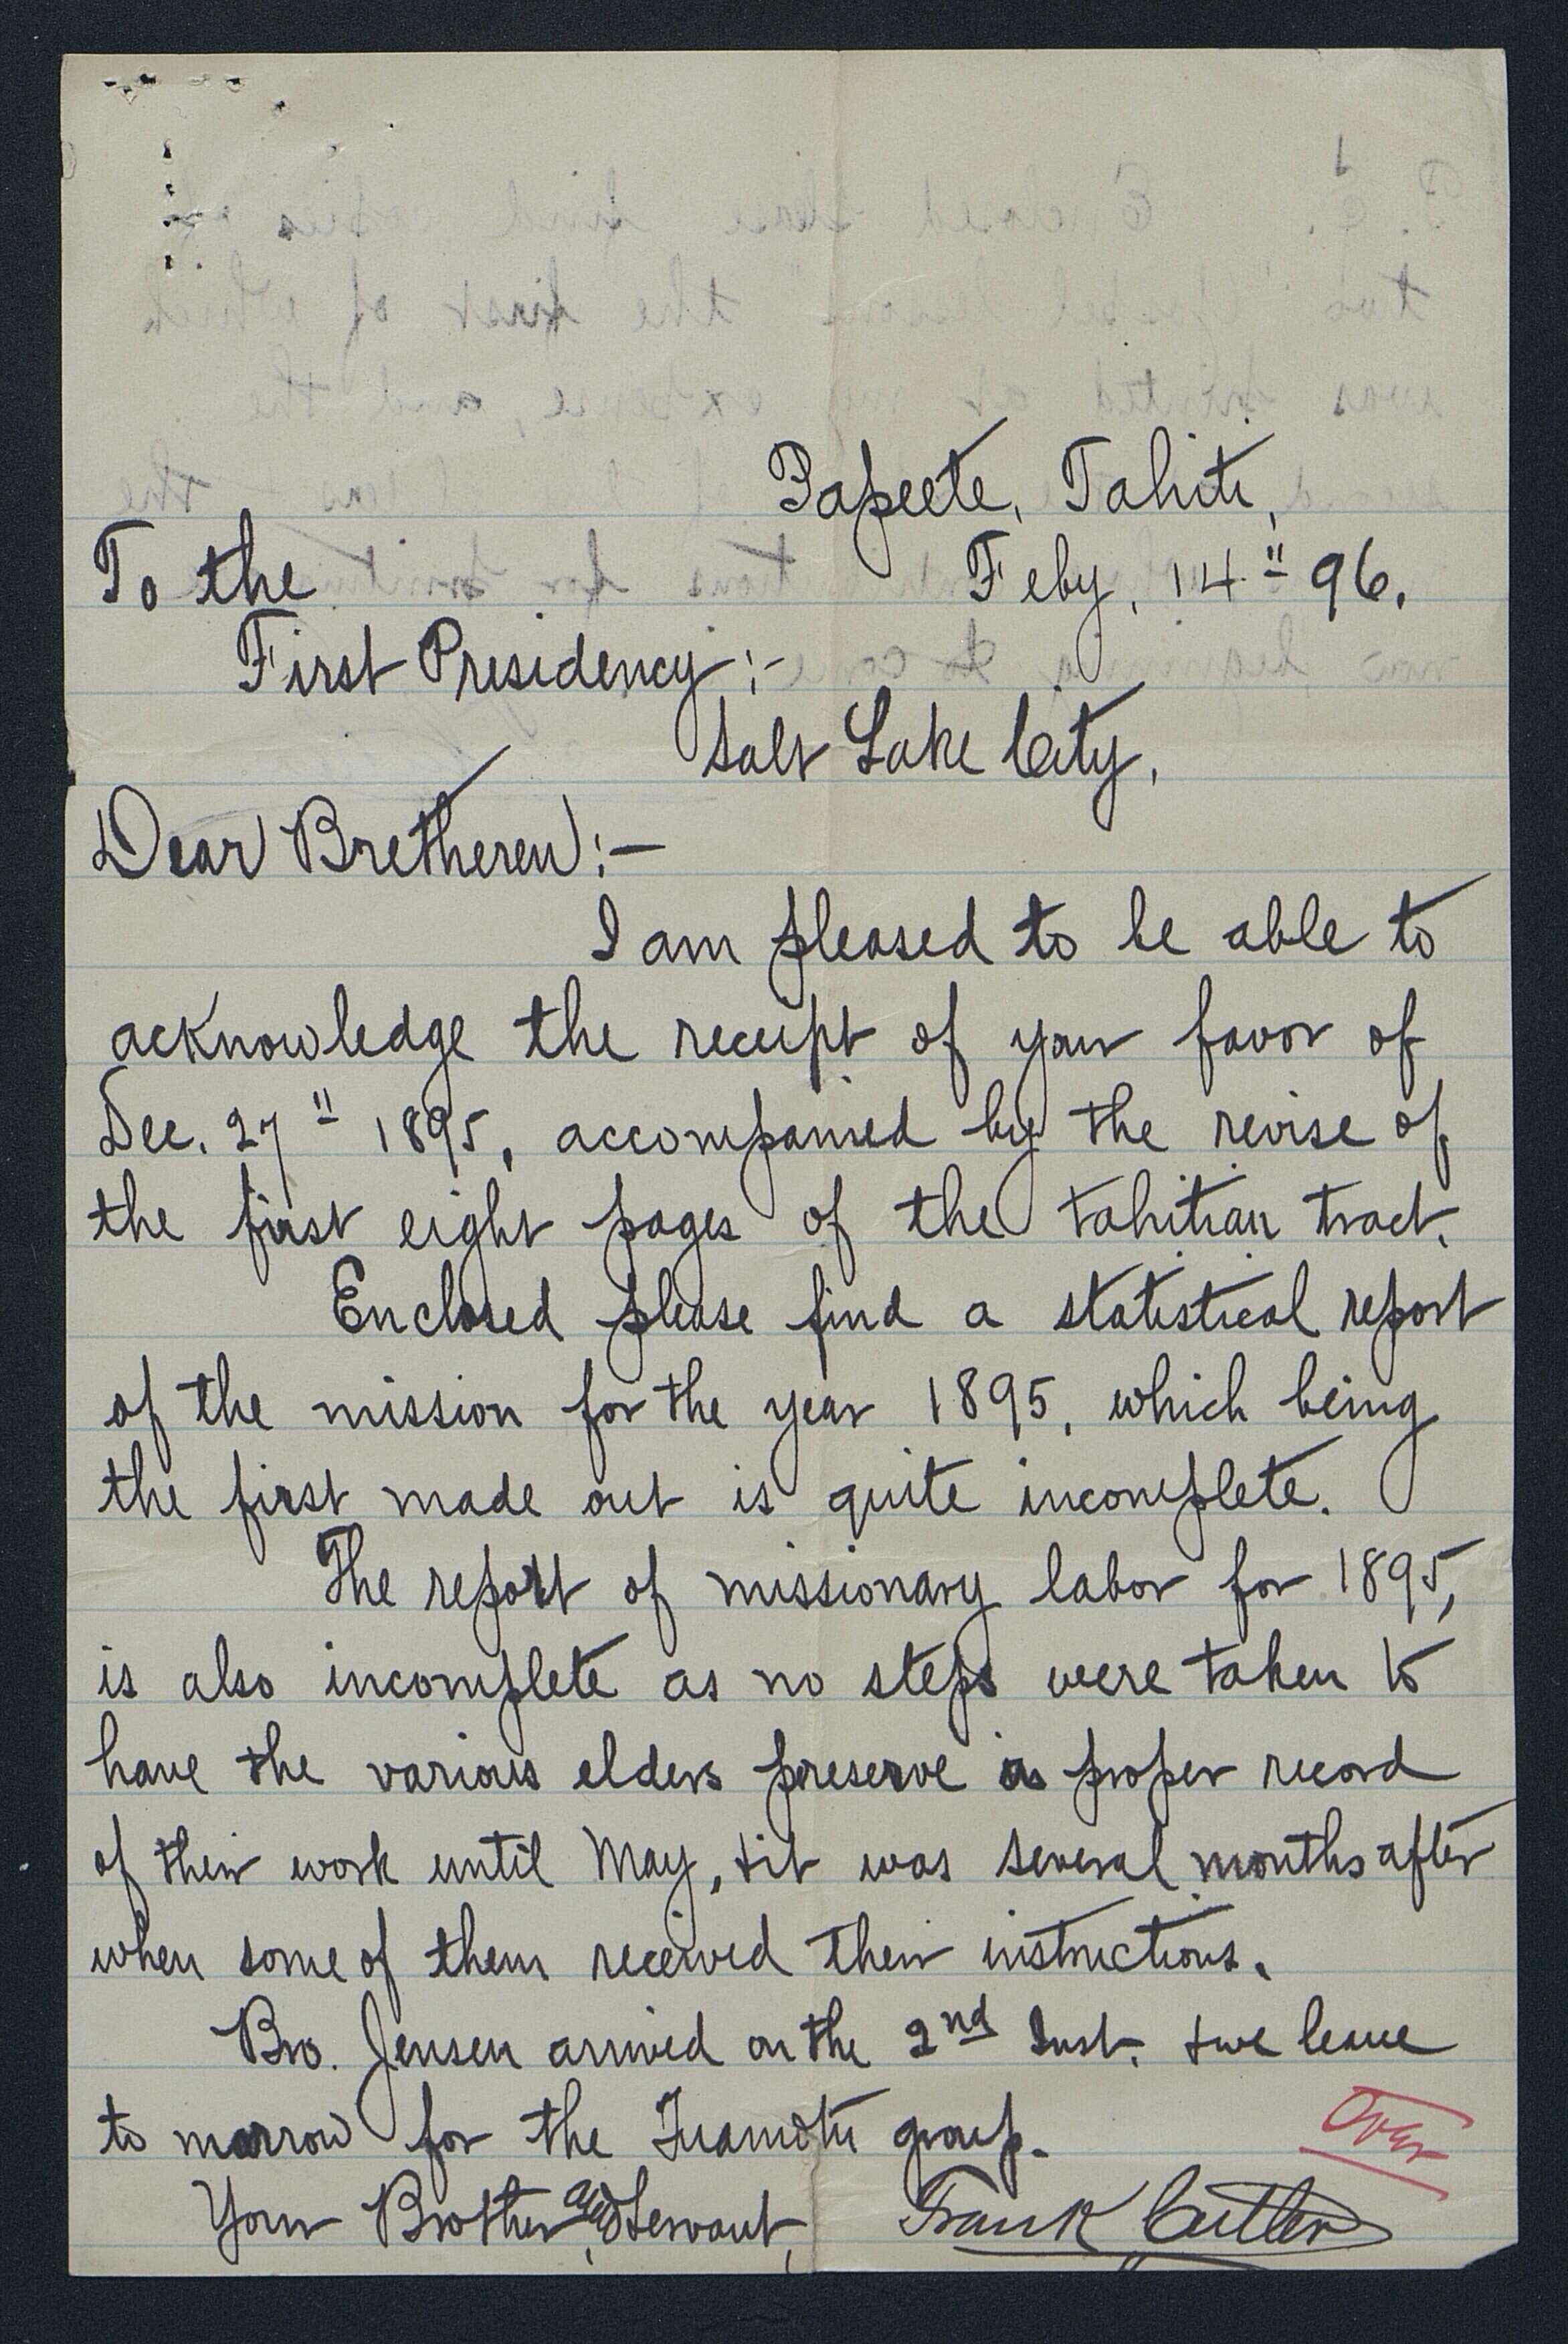 Papeete, Tahiti,
To the Feby, 14" 96.
First Presidency:-
Salt Lake City,
Dear Bretheren:-
I am pleased to be able to
acknowledge the receipt of your favor of
Dec. 27" 1895, accompanied by the revise of
the first eight pages of the tahitian tract.
Enclosed please find a statistical report
of the mission for the year 1895, which being
the first made out is quite incomplete.
The report of missionary labor for 1895,
is also incomplete as no steps were taken to
have the various elders preserve a proper record
of their work until May, + it was several months after
when some of them received their instructions.
Bro. Jensen arrived on the 2nd Inst. + we leave
to morrow for the Tuamotu group.
Over
Your Brother and Servant, Frank Cutler